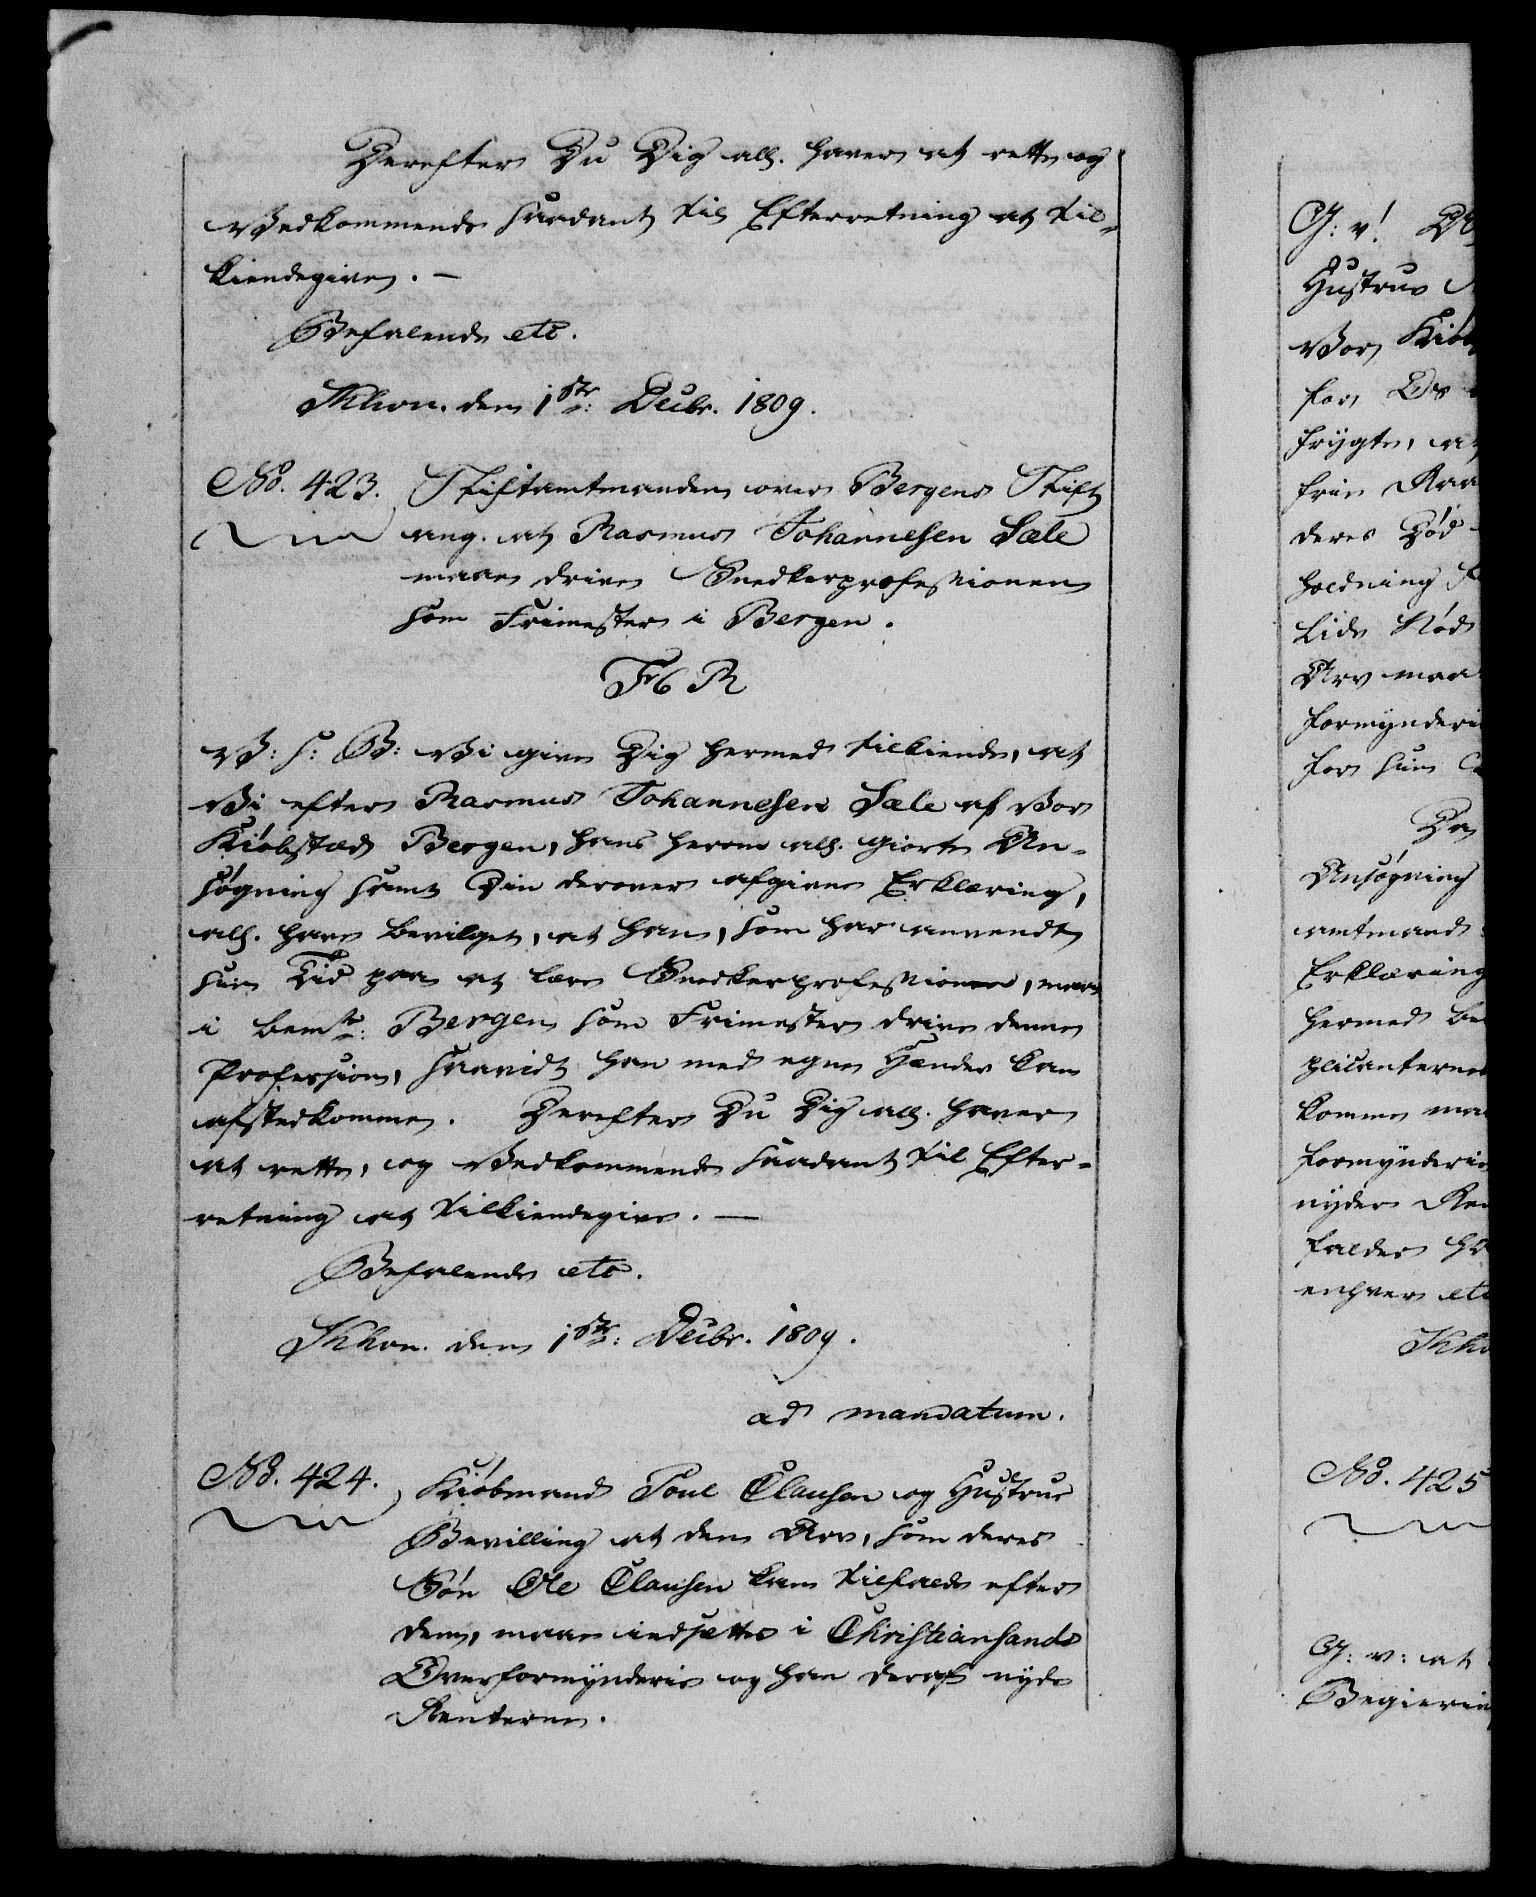 Derefter Du Dig all. haver at rette og
Vedkommende saadant til Efterretning at til-
kiendegive. —
Befalende etc.
Khvn. den 1ste: Decbr. 1809.
No. 423. Stiftamtmanden over Bergens Stift
ang. at Rasmus Johannesen Sæle
maae drive Snedkerprofessionen
som Frimester i Bergen.
F6R
V: s: G: Vi give Dig hermed tilkiende, at
Vi efter Rasmus Johannesen Sæle af Vor
Kiøbstæd Bergen, hans herom all. giorte An-
søgning samt Din derover afgivne Erklæring,
all. have bevilget, at han, som har anvendt
sin Tid paa at lære Snedkerprofessionen, maae
i bemte: Bergen som Frimester drive denne
Profession, saavidt han med egne Hænder kan
afstedkomme. Derefter Du Dig all. haver
at rette, og Vedkommende saadant til Efter-
retning at tilkiendegive. —
Befalende etc.
Khvn. den 1ste: Decbr. 1809.
ad mandatum.
No. 424. Kiøbmand Poul Clausen og Hustrue
Bevilling at den Arv, som deres
Søn Ole Clausen kan tilfalde efter
dem, maae indsættes i Christiansands
Overformynderie og han deraf nyde
Renterne.
G: v!
Hustrue
Vor Kiøb
for Os
frygte, at
frie Raa
deres Død
holdning
lide Nød
Arv maa
formynderi
for sin
Da
Ansøgning
amtmand
Erklæring
hermed be
plicanternes
komme ma
formynderie
nyder Ren
falder
enhver etc
Khv
No. 425
G: v: at
Begierin